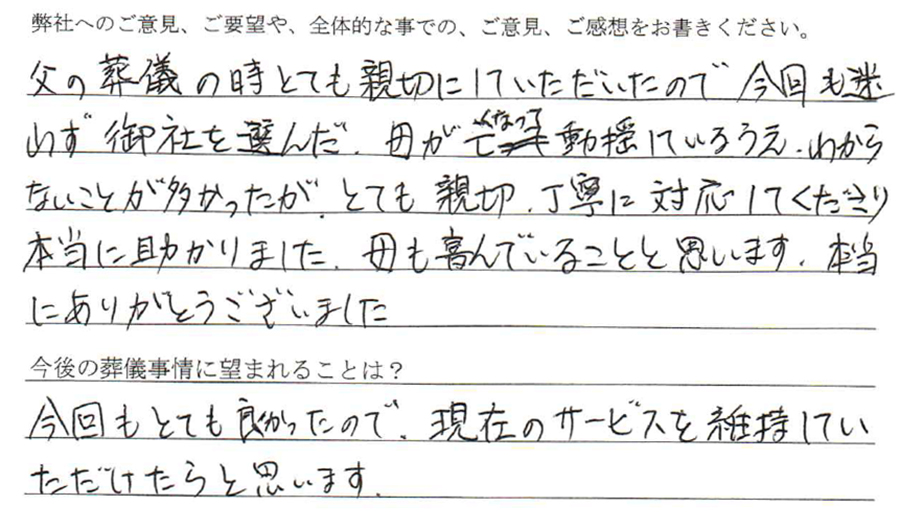 弊社へのご意見、ご要望や、全体的な事での、ご意見、ご感想をお書きください。
父の葬儀の時とても親切にしていただいたので今回も迷
わず御社を選んだ、母が亡くなって動揺しているうえ、わから
ないことが多かったが、とても親切、丁寧に対応してくださり
本当に助かりました、母も喜んでいることと思います、本当
にありがとうございました
今後の葬儀事情に望まれることは？
今回もとても良かったので、現在のサービスを維持してい
ただけたらと思います、